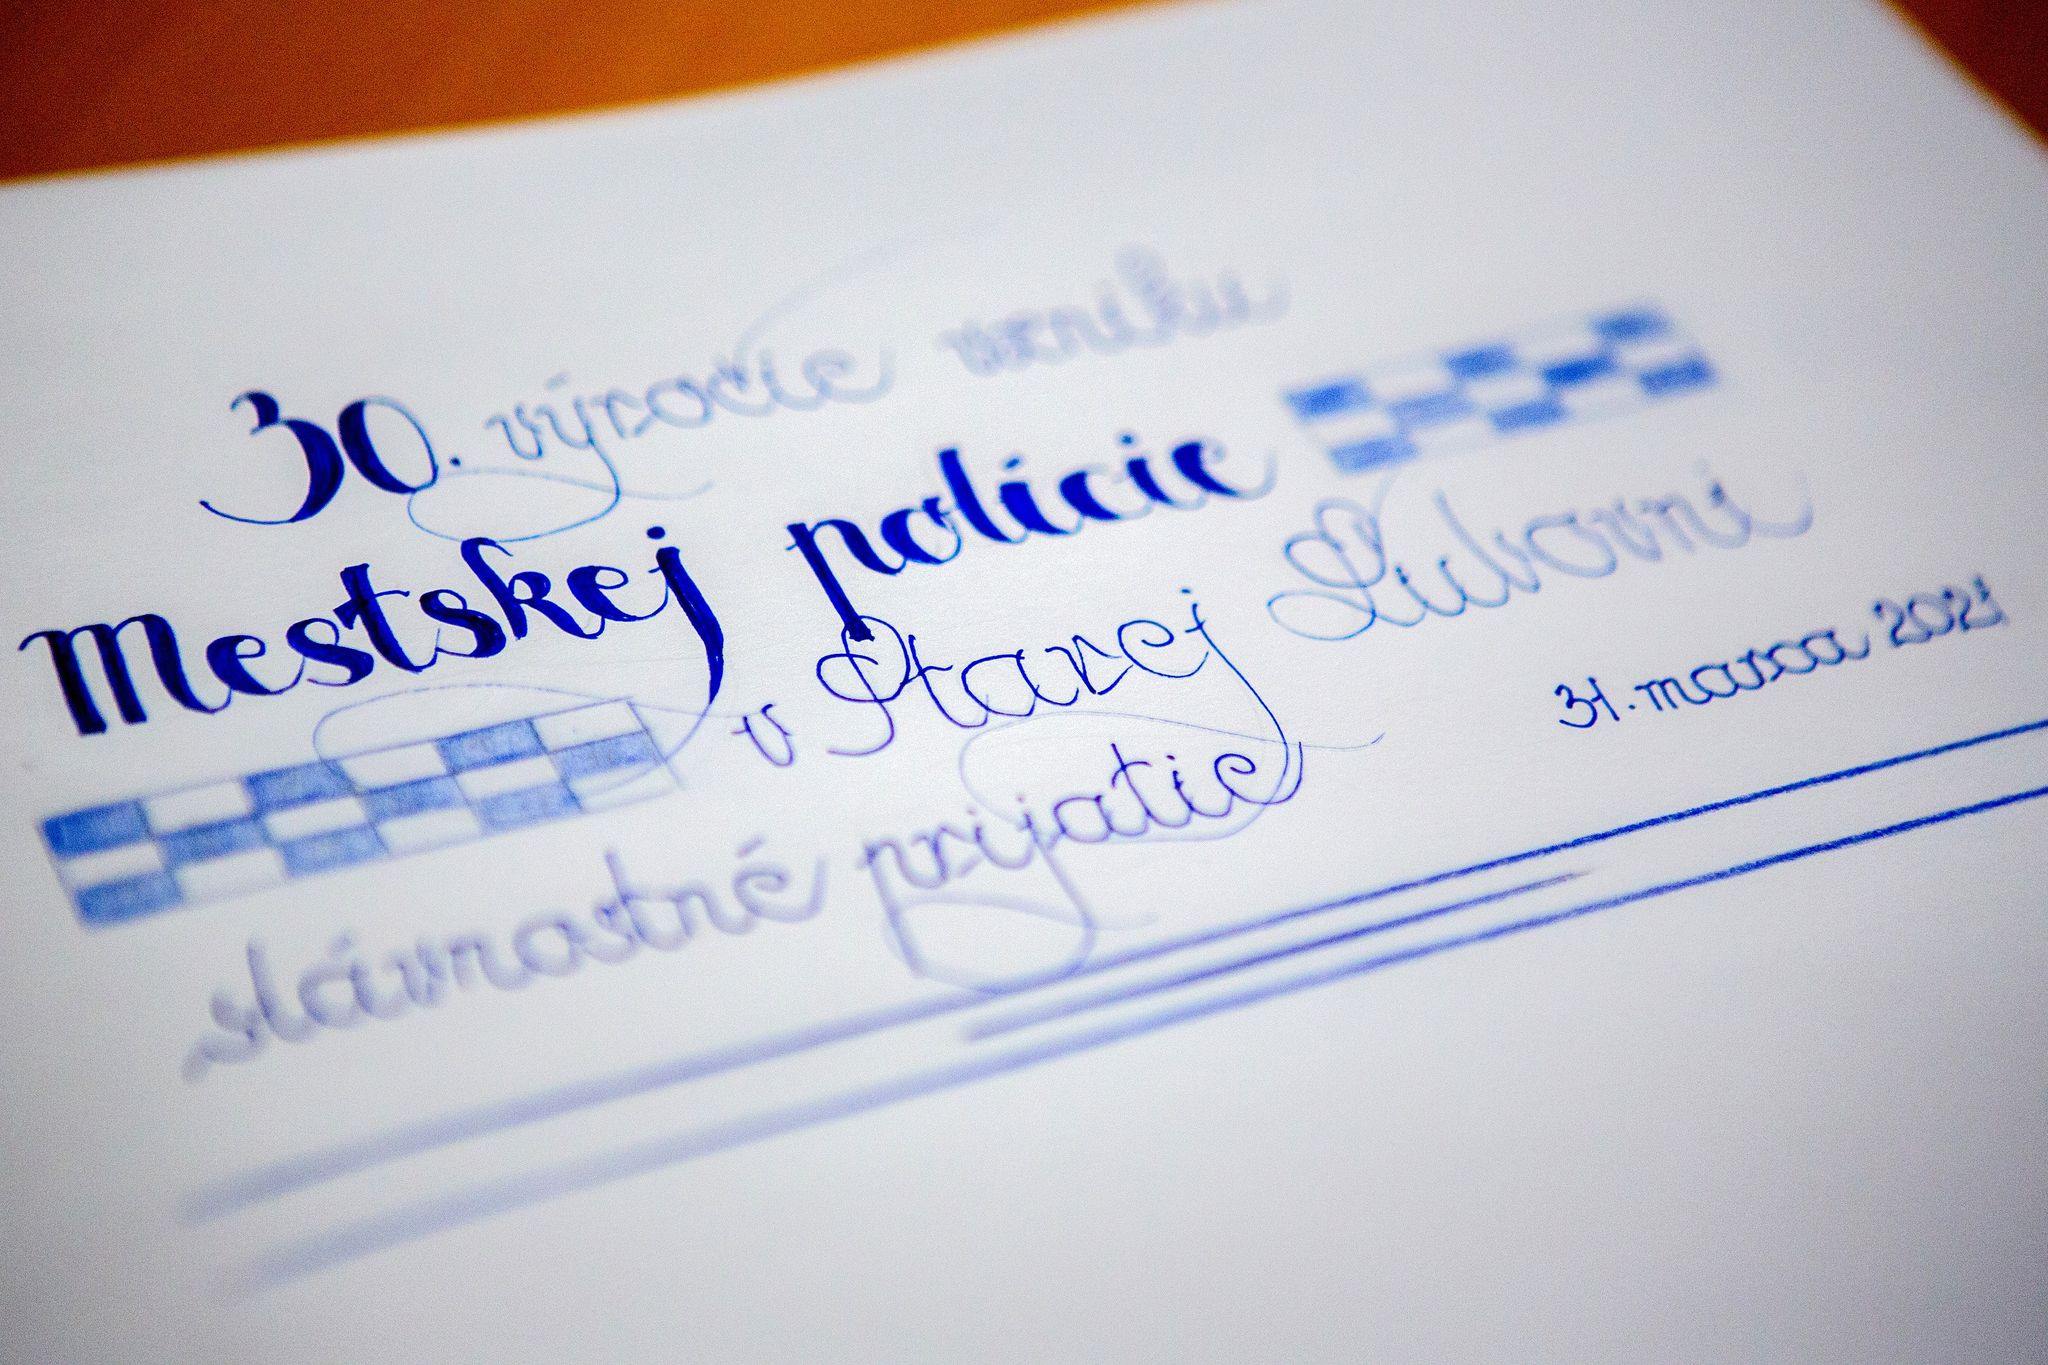 30. výročie vzniku
Mestskej polície
v Starej Ľubovni
slávnostné prijatie
31. marca 2021